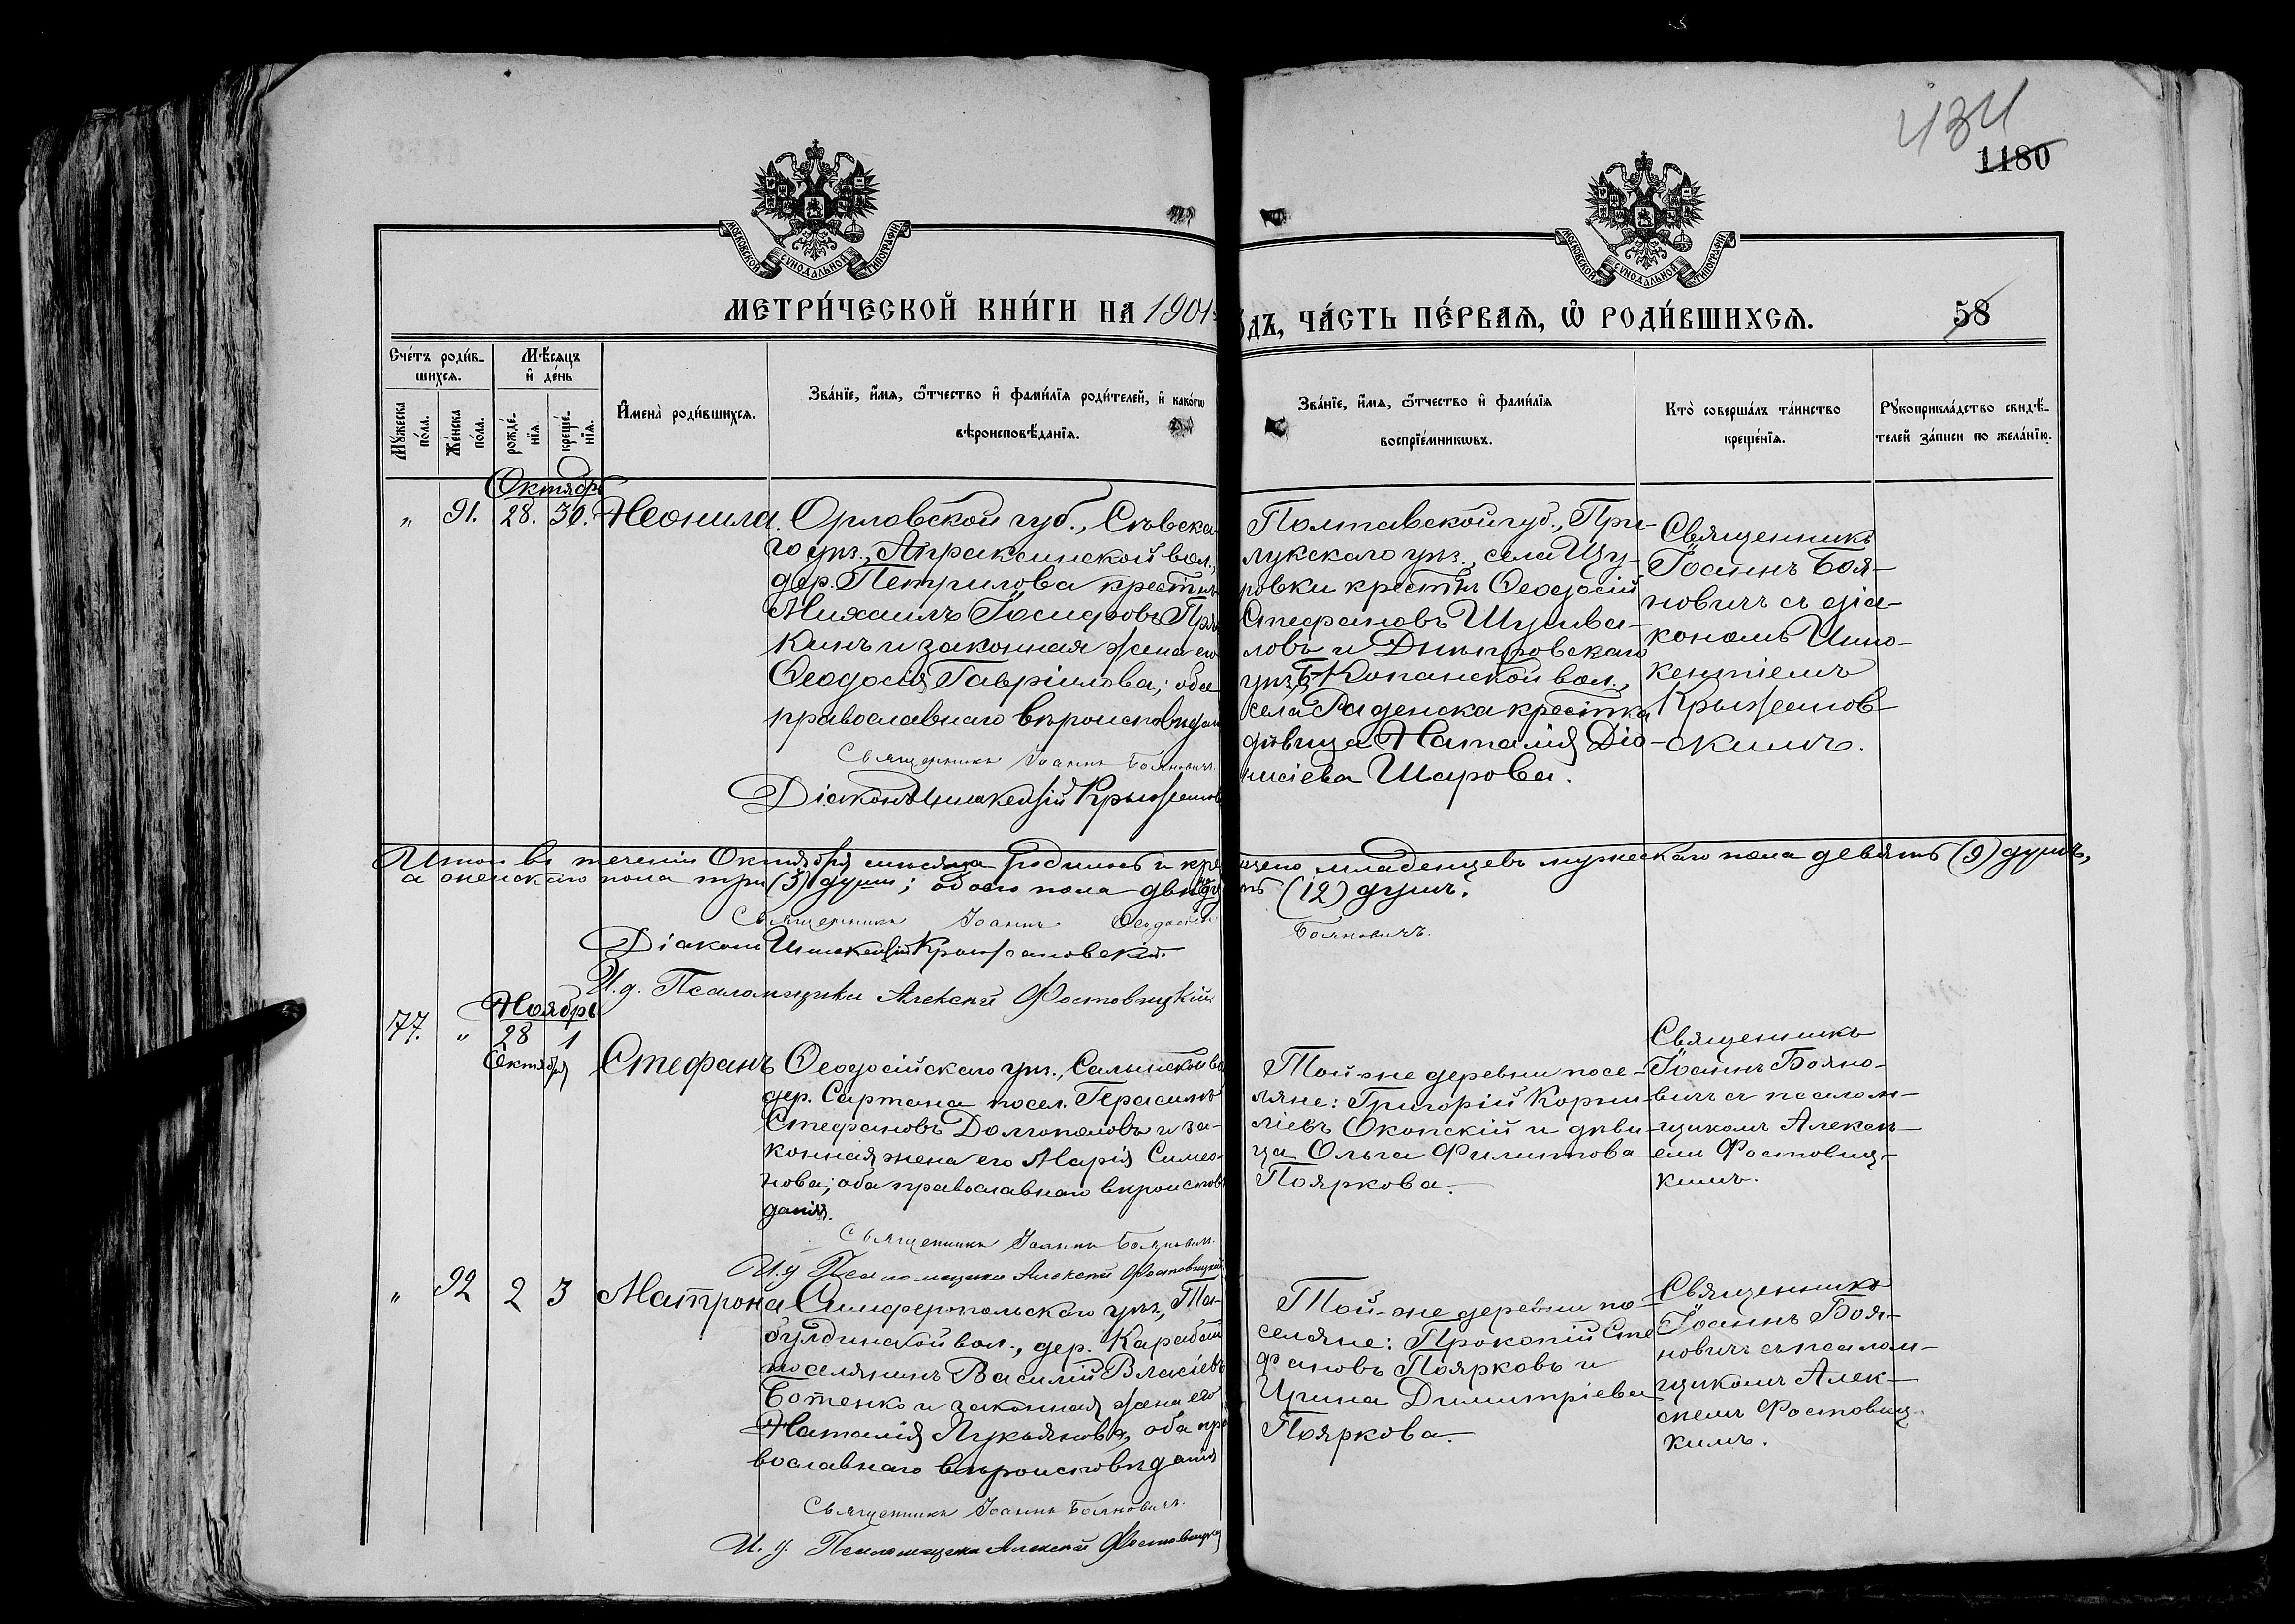 434
1180
МОСКОВСКОЙ СѴНОДАЛЬНОЙ ТИПОГРАФІИ
МОСКОВСКОЙ СѴНОДАЛЬНОЙ ТИПОГРАФІИ
МЕТРИ́ЧЕСКОЙ КНИ́ГИ НА 1901
ДЪ, ЧА́СТЬ ПЕ́РВАѦ, Ѡ РОДИ́ВШИХСѦ.
58
Сче́тъ роди́в-
шихсѧ.
Мѣ́сѧцъ
и҆ де́нь
Мꙋ́жеска
по́ла.
Же́нска
по́ла.
рожде́-
нїѧ
креще́-
нїѧ.
И҆мена̀ роди́вшихсѧ.
Зва́нїе, и҆́мѧ, ѻ҆́тчество и҆ фами́лїѧ роди́телей, и҆ како́гѡ
вѣроисповѣ́данїѧ.
Зва́нїе, и҆́мѧ, ѻ҆́тчество и҆ фами́лїѧ
воспрїе́мникѡвъ.
Кто̀ соверша́лъ та́инство
креще́нїѧ.
Рꙋкоприкла́дство свидѣ́-
телей за́писи по жела́нїю.
Октябрь
" 91. 28. 30. Неонила.
Орловской губ., Сѣвска-
го уѣз., Апраксинской вол.,
дер. Петрилова
Михаилъ Іосифовъ
кинъ и законная жена его
Ѳеодосія Гавріилова; оба
православнаго вѣроисповѣдан
Священникъ Іоаннъ Бояновичъ.
Діаконъ Иннокентій Крыжанов
Полтавской губ., При-
лукскаго уѣз., села Щу-
ровки крест-нъ Ѳеодосій
Стефановъ Шушва-
ловъ и Днѣпровскаго
уѣз., Б-Копанской вол.,
села Раденска крест-ка
дѣвица Наталія Діо-
нисіева Шарова.
Священникъ
Іоаннъ Боя-
новичъ съ діа-
кономъ Инно-
кентіемъ
Крыжанов-
скимъ.
Итого въ теченіи Октября мѣсяца родилось и кре
щено младенцевъ мужескаго пола девять (9) душъ,
а женскаго пола три (3) души; обоего пола двѣнад
ть (12) душъ.
Священникъ Іоаннъ Ѳеодосіев
Бояновичъ.
Діаконъ Иннокентій Крыжановскій.
И.д. Псаломщика Алексѣй Фостовицкій
Ноябрь
77. " 28 1
Октября
Стефанъ
Ѳеодосійскаго уѣз., Салынской во
дер. Сартана посел. Герасимъ
Стефановъ Долгополовъ и за-
конная жена его Марія Симео-
нова; оба православнаго вѣроиспов
данія.
Священникъ Іоаннъ Боянович.
И.д Псаломщика Алексѣй Фостовицкій
Той-же деревни посе-
ляне: Григорій Корни-
ліевъ Окопскій и дѣви-
ца Ольга Филиппова
Пояркова.
Священникъ
Іоаннъ Бояно-
вичъ съ псалом-
щикомъ Алексѣ-
емъ Фостовиц-
кимъ.
" 92 2 3 Матрона
Симферопольскаго уѣз., Та-
булдинской вол., дер. Карабай
поселянинъ Василій Власіевъ
Ботенко и законная жена его
Наталія Лукьянова, оба пра
вославнаго вѣроисповѣданія
Священникъ Іоаннъ Бояновичъ.
И. д. Псаломщика Алексѣй Фостовицкій
Той-же деревни по-
селяне: Прокопій Сте
фановъ Поярковъ и
Ирина Димитріева
Пояркова.
Священникъ
Іоаннъ Боя-
новичъ съ псалом-
щикомъ Алек-
сѣемъ Фостовиц-
кимъ.